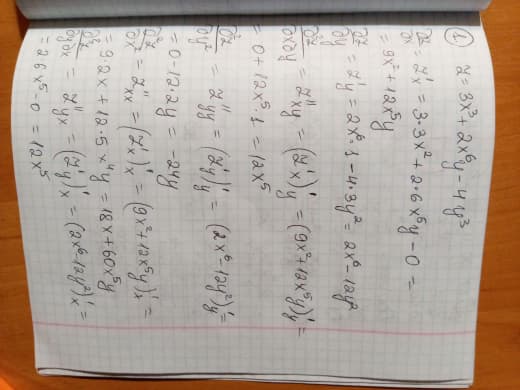 1. z = 3x³ + 2x⁶y − 4y³
∂z/∂x = z'ₓ = 3·3x² + 2·6x⁵y − 0 =
= 9x² + 12x⁵y
∂z/∂y = z'y = 2x⁶·1 − 4·3y² = 2x⁶ − 12y²
∂²z/∂x∂y = z''xy = (z'x)'y = (9x² + 12x⁵y)'y =
= 0 + 12x⁵·1 = 12x⁵
∂²z/∂y² = z''yy = (z'y)'y = (2x⁶ − 12y²)'y =
= 0 − 12·2y = −24y
∂²z/∂x² = z''xx = (z'x)'x = (9x² + 12x⁵y)'x =
= 9·2x + 12·5x⁴y = 18x + 60x⁵y
∂²z/∂y∂x = z''yx = (z'y)'x = (2x⁶ − 12y²)'x =
= 2·6x⁵ − 0 = 12x⁵